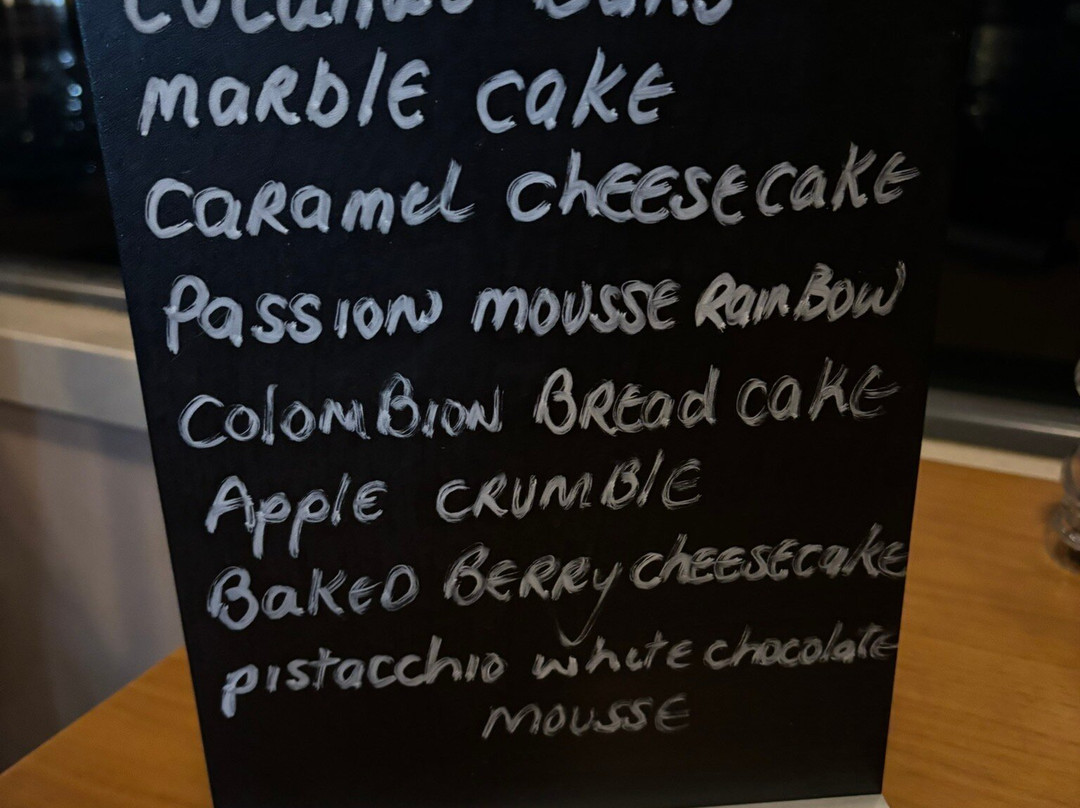 marble cake
Caramel cheesecake
Passion mousse Rainbow
Colombion Bread cake
Apple crumble
Baked Berry cheesecake
pistacchio white chocolate
mousse